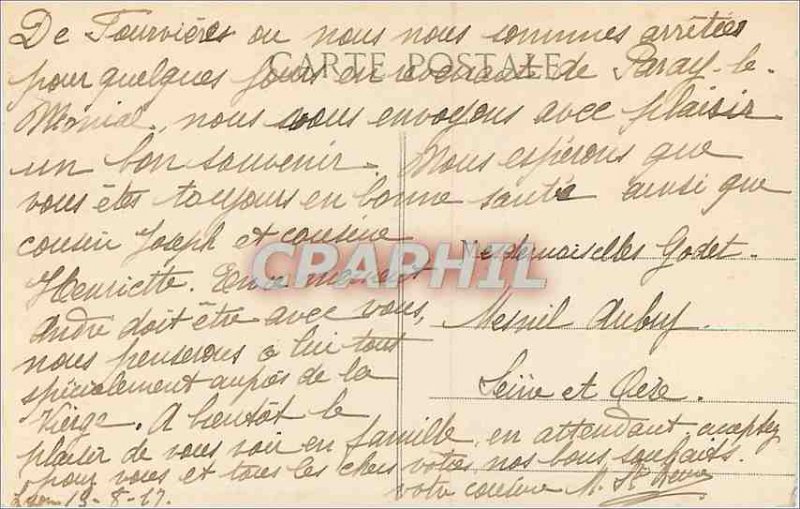 De Fourvières ou nous nous sommes arrêtées
CARTE POSTALE
pour quelques jours en revenant de Paray-le-
Monial, nous vous envoyons avec plaisir
un bon souvenir. Nous espérons que
vous êtes toujours en bonne santé ainsi que
cousin Joseph et cousine
Henriette. En ce moment
André doit être avec vous,
nous penserons à lui tout
spécialement auprès de la
Vierge. A bientôt le
plaisir de vous voir en famille, en attendant acceptez
pour vous et tous les chers vôtres nos bons souhaits.
votre cousine M. St
Lyon 19-8-17.
Mesdemoiselles Godet.
Mesnil Aubry.
Seine et Oise.
CPAPHIL